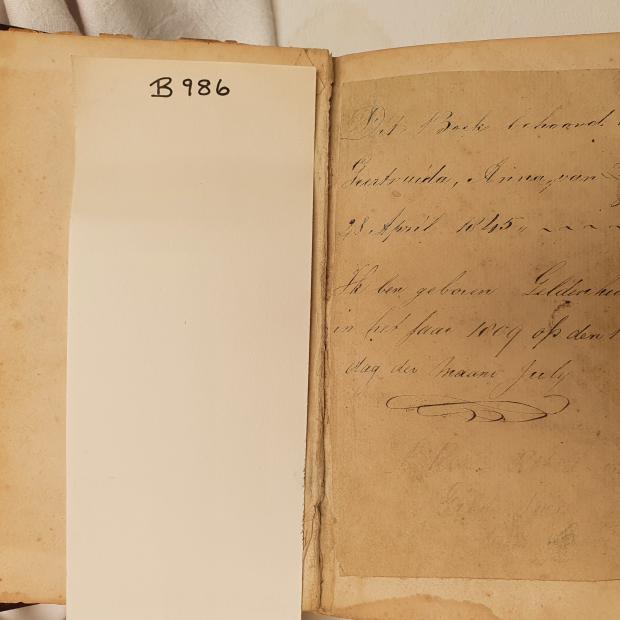 B 986
Dit Boek behoord
Geertruida, Anna, van
28 April 1845
Ik ben geboren Geldenhu
in het Jaar 1809 op den 1
dag der Maand July